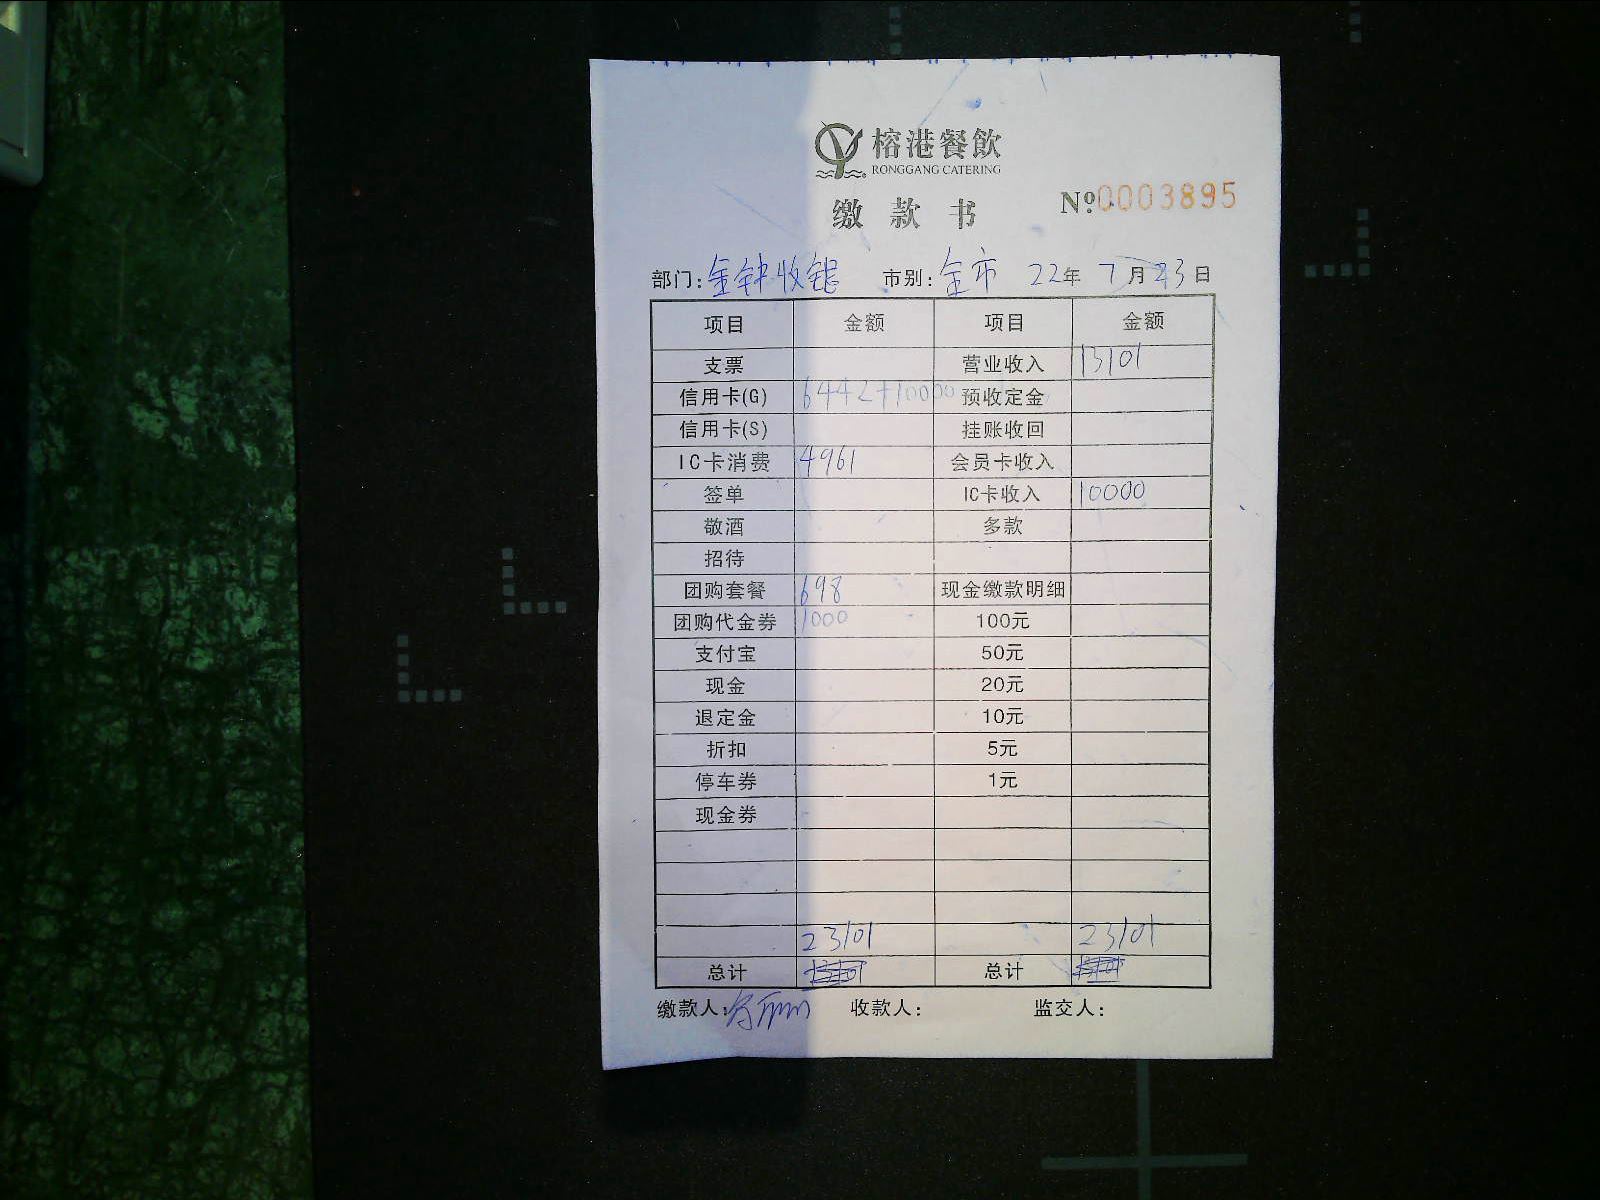 榕港餐飲
RONGGANG CATERING
缴款书 Nº.0003895
部门: 金钟收银 市别: 全市 22年 7月23日
项目 金额 项目 金额
支票 营业收入 13101
信用卡(G) 6442+10000 预收定金
信用卡(S) 挂账收回
IC卡消费 4961 会员卡收入
签单 IC卡收入 10000
敬酒 多款
招待
团购套餐 698 现金缴款明细
团购代金券 1000 100元
支付宝 50元
现金 20元
退定金 10元
折扣 5元
停车券 1元
现金券
23101 23101
总计 13101 总计 13101
缴款人: 收款人: 监交人: